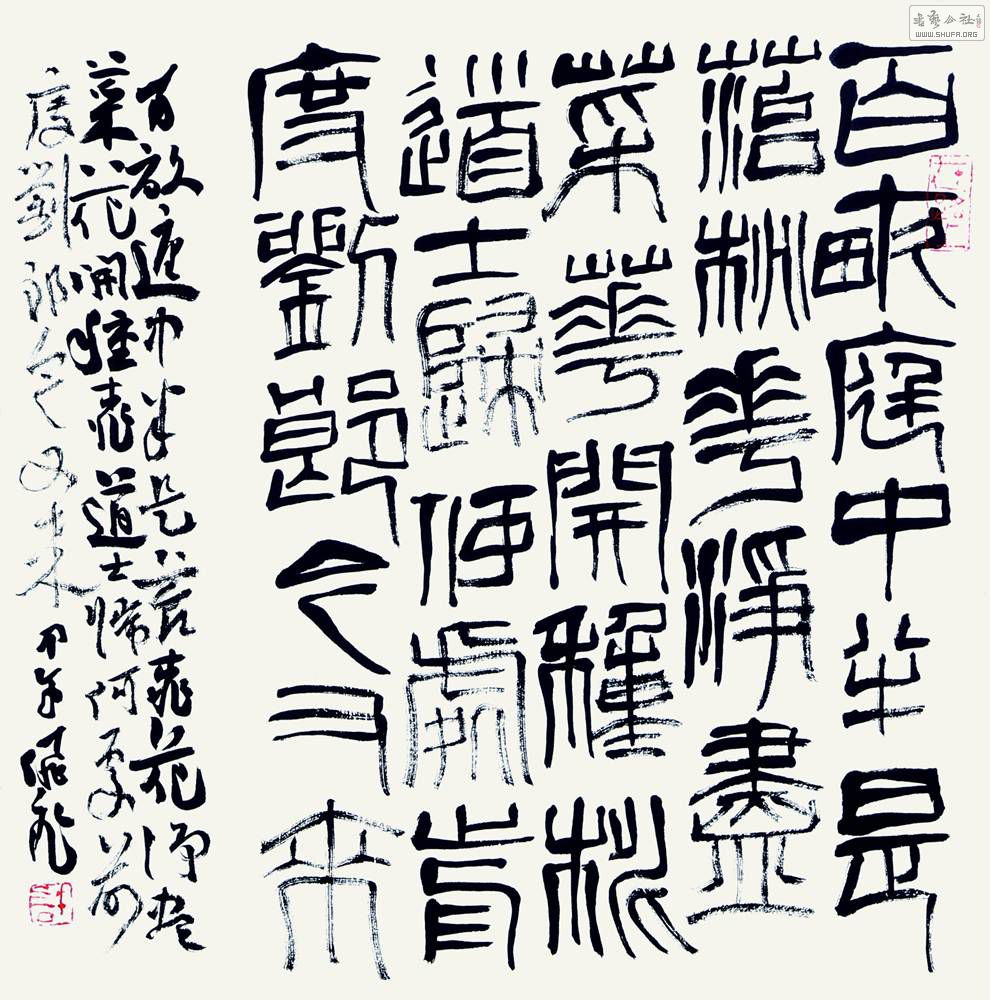 百畝庭中半是
菭桃華淨盡
菜華開種桃
道士歸何處前
度劉郎今又來
百畝庭中半是苔桃花淨盡
菜花開種桃道士歸何處前
度劉郎今又來
書藝公社
WWW.SHUFA.ORG